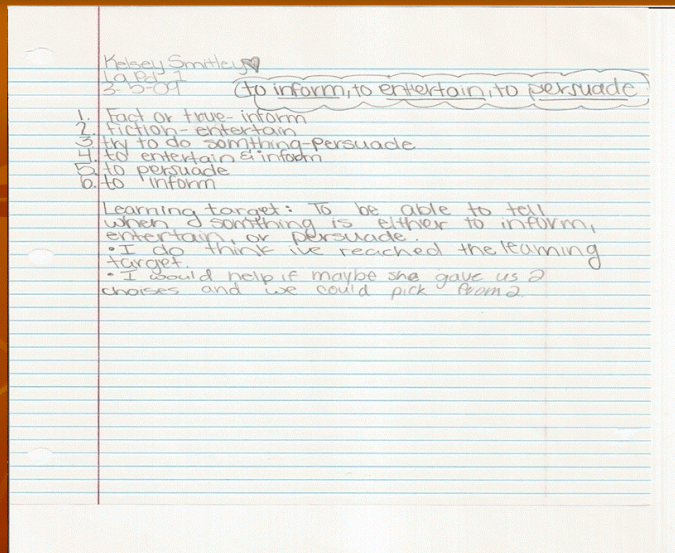 Kelsey Smitley
La Pd. 1
3-5-09
to inform, to entertain, to persuade
1. Fact or true- inform
2. Fiction- entertain
3. try to do somthing-Persuade
4. to entertain & inform
5. to persuade
6. to inform
Learning target: To be able to tell
when somthing is either to inform,
entertain, or persuade.
• I do think i've reached the learning
target.
• I would help if maybe she gave us 2
choises and we could pick from 2.